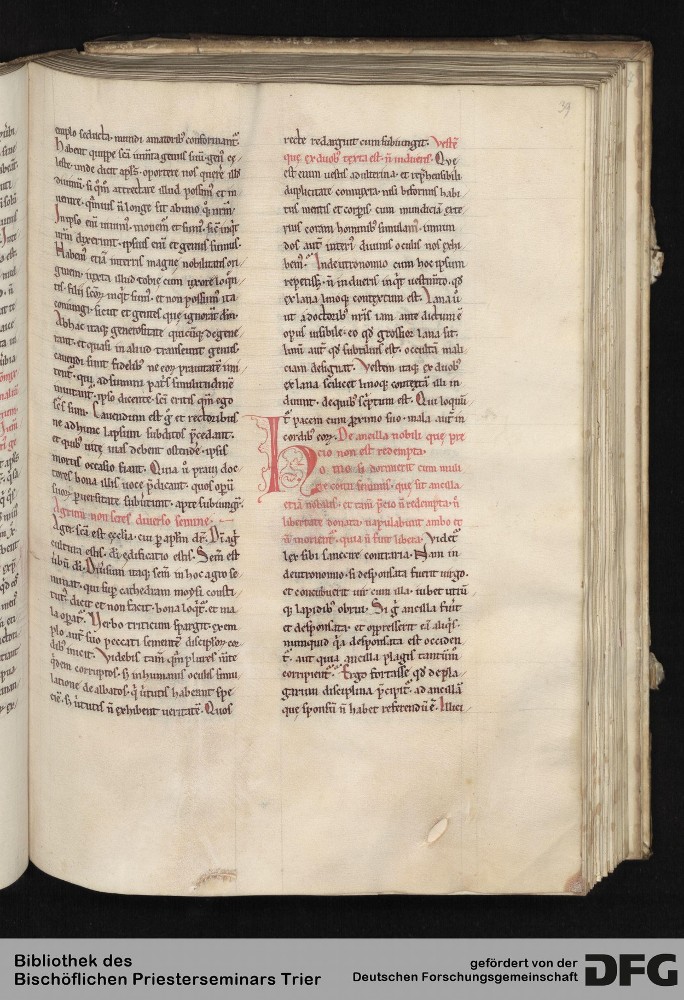 39
emplo seducta. mundi amatorib; conformant̄.
Habent quippe sc̄i
leste. unde dicit apl̃s. oportet nos querere illd
diuinū. si q̄m attrectare illud possim; et in
uenire. q̄muis n̄ longe sit ab uno q̄q; nr̄m.
In ipso enī uiuim; mouem̄ et sum; sic inq̄t
ur̄m dixerunt. ipsius enī et genus sumus.
Habem; etiā in terris magne nobilitatis ori
ginem. iuxta illud tobie cum uxore loq̄n
tis. filii sc̄oꝝ inq̄t sum; et non possum; ita
coniungi. sicut et gentes que ignorāt dm̄.
Ab hac itaq; generositate quicūq; degene
rant. et quasi in aliud transeunt genus.
cauendi sunt fidelib; ne eoꝝ prauitatē imi
tent̄. qui ad summi patris similitudinē
inuitant̄. ipso dicente. sc̄i eritis qm̄ ego
sc̄s sum. Cauendum est g̊ et rectorib;
ne ad hunc lapsum subditos p̄cedant.
et quib; uite uias debent ostendere. ipsis
mortis occasio fiant. Quia u̾ praui doc
tores bona illis uoce p̄dicant. quos opū
suoꝝ ꝑuersitate subuertunt. apte subiungit̄.
Agrum non seres diuerso semine.
Ager. sc̄a est ęcclia. cui ꝑ apl̃m dr̄. Dī agͥ
cultura estis. dī edificatio estis. Sem̄ est
uerbū dī. Diuisum itaq; sem̄ in hoc agro se
minat. qui supͬ cathedram moysi consti
tutꝰ dicit et non facit. bona loq̄t̄ et ma
la opat̄. Verbo triticum spargit. exem
plo aut̄ suo peccati sementē discipl̃oꝝ cor
dib; inicit. Videbis tam̄ q̄m plures m̄te
q̄dem corruptos. s; inhumanis oculis simu
latione dealbatos. q̇ uirtutis habeant spe
ciē. s; uirtutis n̄ exhibent ueritatē. Quos
recte redarguit cum subiungit. Vestē
que ex duob; texta est. n̄ indueris. Que
est enim uestis adulterina. et rep̄hensibili
duplicitate contexta. nisi biformis habi
tus mentis et corpis. cum mundiciā exte
rius coram hominib; simulam;. immun
dos aut̄ interi; diuinis oculis nos exhi
bem;. In deutronomio cum hoc ipsum
repetiss; n̄ indueris inq̄t uestimto. qd̄
ex lana linoq; contextum est. Lana ū
ut a doctorib; nr̄is iam ante dictum ē
opus uisibile. eo qd̄ grossior lana sit.
linū aut̄ qd̄ subtilius est. occultā mali
ciam designat. Vestem itaq; ex duob;
ex lana scilicet linoq; contextā illi in
duunt. de quib; sc̄ptum est. Qui loquū
t̄ pacem cum proximo suo. mala aut̄ in
cordib; eoꝝ. De ancilla nobili que pre
cio non est redempta.
Homo si dormierit cum muli
ere coitu seminis. que sit ancilla
etiā nobilis. et tam̄ p̄cio n̄ redempta. n̄
libertate donata. uapulabunt ambo et
n̄ morient̄. quia n̄ fuit libera. Videt̄
lex sibi sanctire contraria. Nam in
deutronomio. si desponsata fuerit uirgo.
et concubuerit uir cum illa. iubet utrū
q; lapidib; obrui. Si g̊ ancilla fuerit
et desponsata. et oppresserit eā aliq̇s.
numquid q̇a desponsata est occiden
t̄. aut quia ancilla plagis tantum
corripient̄. Ergo fortasse qd̄ de pla
garum disciplina p̄cipit̄. ad ancillā
que sponsū n̄ habet referendū ē. Illici
Bibliothek des
Bischöflichen Priesterseminars Trier
gefördert von der
Deutschen Forschungsgemeinschaft
DFG